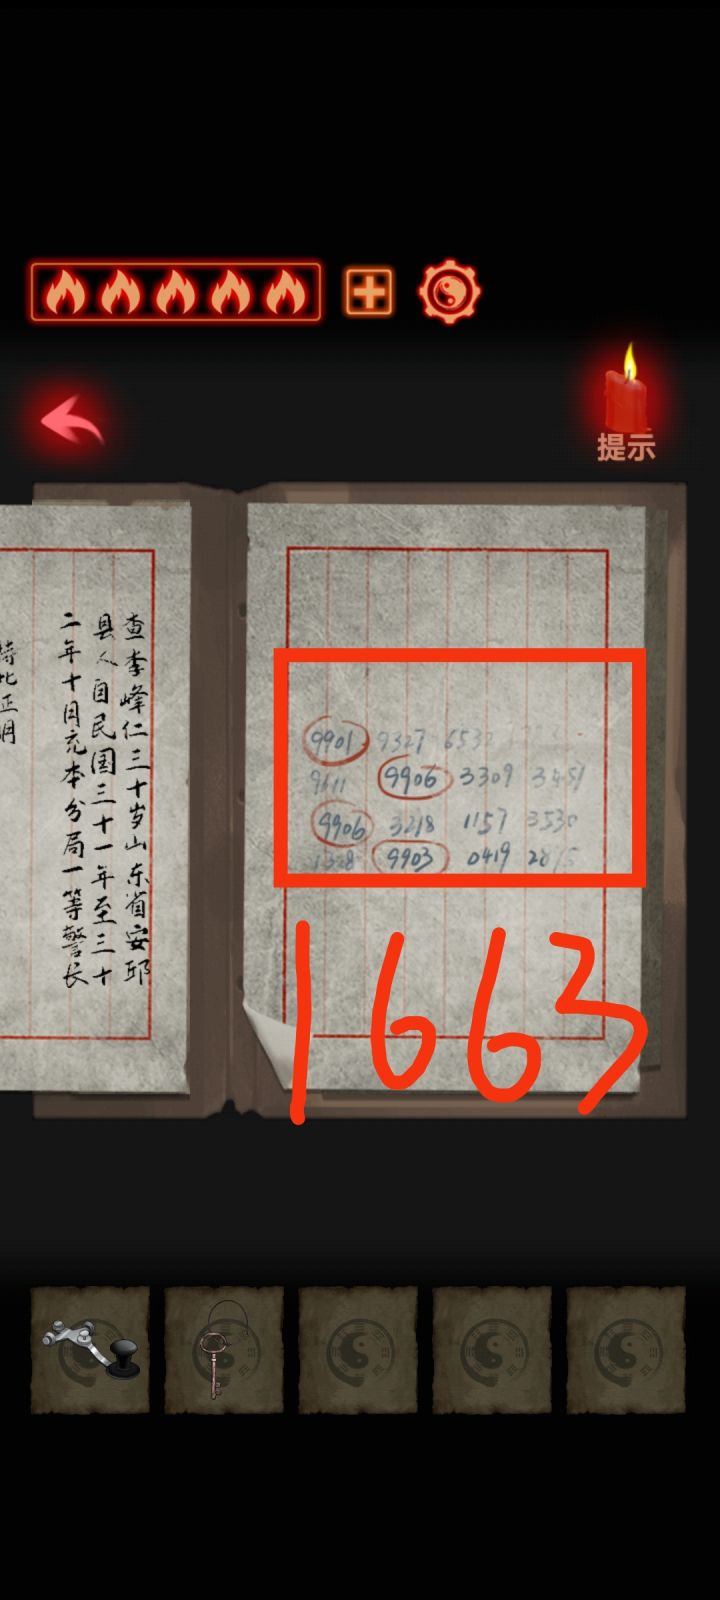 提示
查李峰仁三十岁山东省安邱
县人自民国三十一年至三十
二年十月充本分局一等警长
特此正明
9901 9327 6532
9611 9906 3309 3451
9906 3218 1157 3530
1328 9903 0419 2815
1663